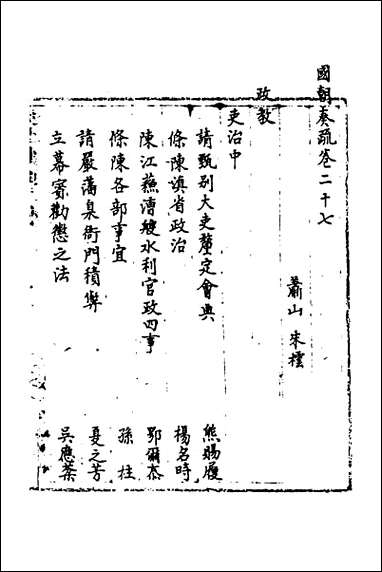 國朝奏疏卷二十七
蕭山 朱櫄
政教
吏治中
請甄別大吏釐定會典 熊賜履
條陳滇省政治 楊名時
陳江蘇漕艘水利官政四事 鄂爾泰
條陳各部事宜 孫柱
請嚴藩臬衙門積弊 夏之芳
立幕賓勸懲之法 吳應棻